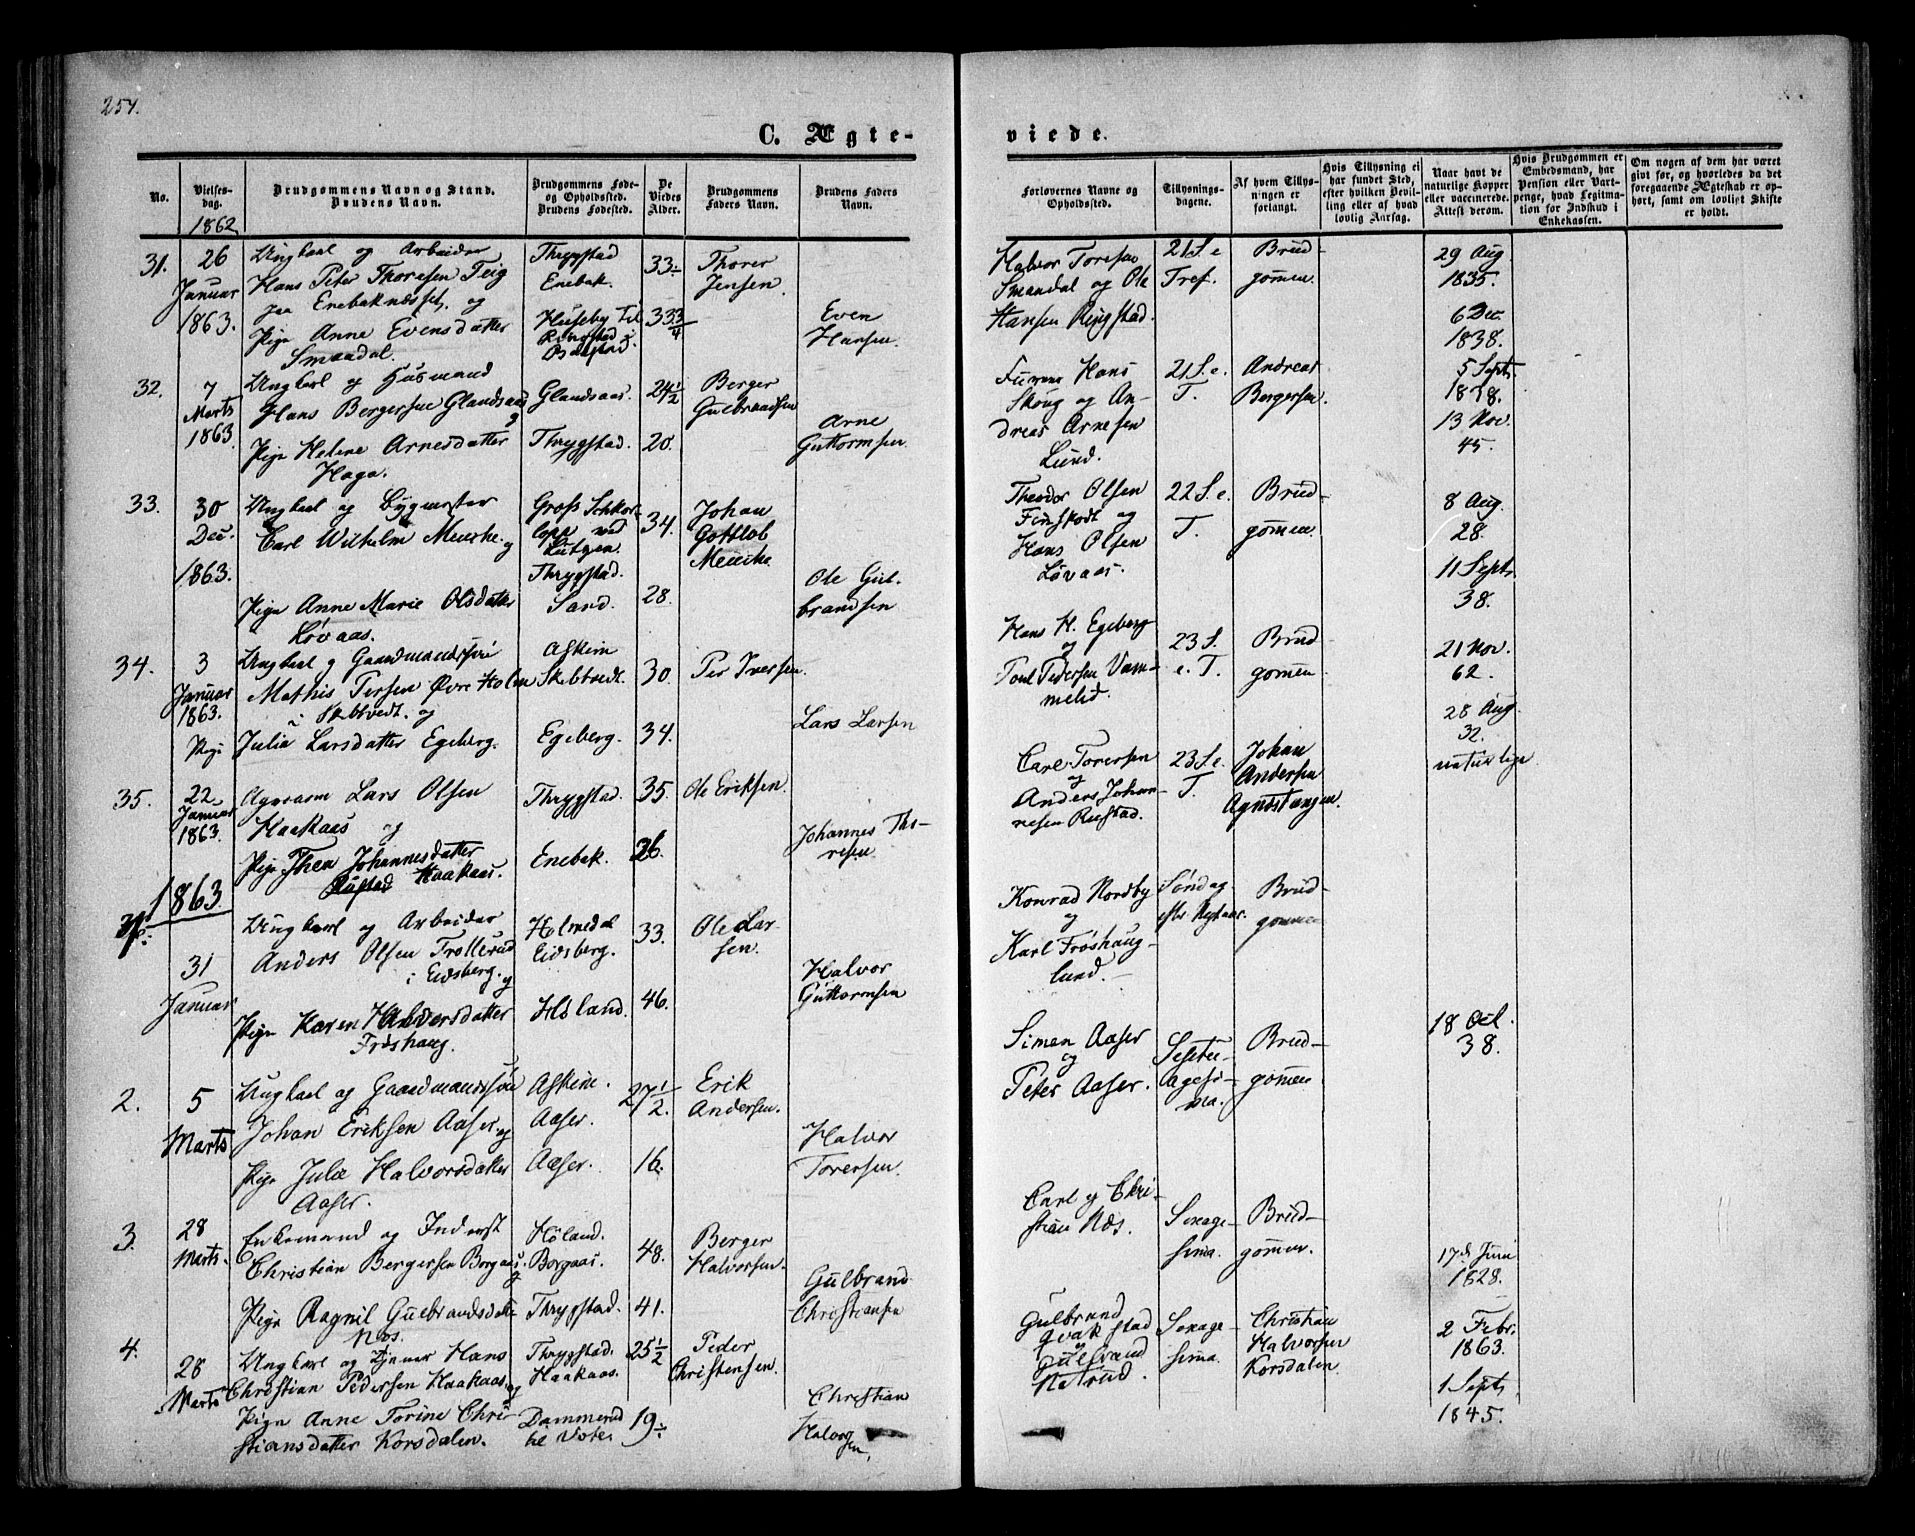 254.
C. Ægte-
viede.
No.
Vielses-
dag.
Brudgommens Navn og Stand.
Brudens Navn.
Brudgommens Føde-
og Opholdssted.
Brudens Fødested.
De
Viedes
Alder.
Brudgommens
Faders Navn.
Brudens Faders
Navn.
Forlovernes Navne og
Opholdssted.
Tillysnings-
dagene.
Af hvem Tillys-
ningen er
forlangt.
Hvis Tillysning ei
har fundet Sted,
efter hvilken Bevil-
ling eller af hvad
lovlig Aarsag.
Naar havt de
naturlige Kopper
eller vaccinerede.
Attest derom.
Hvis Brudgommen er
Embedsmand, har
Pension eller Vart-
penge, hvad Legitima-
tion for Indskud i
Enkekassen.
Om nogen af dem har været
givt før, og hvorledes da det
foregaaende Ægteskab er op-
hørt, samt om lovligt Skifte
er holdt.
1862
31.
26
Januar
1863.
Ungkarl og Arbeider
Hans Peter Thoresen Teig
paa Enebaknæsset, og
Pige Anne Evensdatter
Smaadal.
Thrygstad
Enebak.
Huseby til
Ringstad i
33
33 3/4
Thorer
Jensen.
Even
Hansen.
Halvor Toresen
Smaadal og Ole
Hansen Ringstad.
21 S. e
Tref.
Brud-
gomen.
29 Aug
1835.
6 Dec.
1838.
32.
7
Marts
1863
Ungkarl og Husmand
Hans Bergersen Glandsaas
og
Pige Helene Arnesdatter
Haga.
Glandsaas.
Thrygstad.
24 1/2
20.
Berger
Gulbrandsen
Arne
Guttormsen.
Hans
Skoug og An-
dreas Arnesen
Lund.
21 S. e.
T.
Andreas
Bergersen.
5 Sept.
1838.
13 Nov.
45.
33.
30
Dec.
1863.
Ungkarl og Bygmester
Carl Wilhelm Meische og
Pige Anne Marie Olsdatter
Løvaas.
Gross Schkor-
lopp ved
Lutzen.
Thrygstad.
Sand.
34.
28.
Johan
Gottlob
Meische
Ole Gul-
brandsen
Theodor Olsen
Finskodt og
Hans Olsen
Løvaas.
22 S. e.
T.
Brud-
gomen.
8 Aug.
28.
11 Sept.
38.
34.
3
Januar
1863.
Ungkarl og Gaardmandssøn
Mathis Persen Øvre Holm
i Skebtvedt. og
Pige Julia Larsdatter Egeberg.
Askim
Skebtvedt.
Egeberg.
30.
34.
Per Iversen.
Lars Larsen
Hans H. Egeberg
og
Poul Pedersen Vam-
melid.
23 S.
e. T.
Brud-
gomen.
21 Nov.
62.
28 Aug.
32.
35.
22
Januar
1863.
Lars Olsen
Haakaas
og
Pige Thea Johannesdatter
Rustad Haakaas.
Thrygstad.
Enebak.
35.
26.
Ole Eriksen.
Johannes Tho-
resen
Carl Torersen
og
Anders Johan-
nesen Rustad.
23 S. e
T.
Johan
Andersen
Agnæstangen.
naturlige
1863
1.
31
Januar
Ungkarl og Arbeider
Anders Olsen Trollerud
i Eidsberg. og
Pige Karen Halvorsdatter
Frøshaug.
Holmedal
Eidsberg.
Høland.
33.
46.
Ole Lar-
sen.
Halvor
Guttormsen
Konrad Nordby
og
Karl Frøshaug-
lund.
Søndag
eftr Nytaar.
Brud-
gomen
2.
5
Marts
Ungkarl og Gaardmandssøn
Johan Eriksen Aaser og
Pige Julie Halvorsdatter
Aaser.
Askim.
Aaser.
Aaser.
27 1/2.
16.
Erik
Andersen.
Halvor
Torersen.
Simen Aaser
og
Peter Aaser.
Septu-
agesi-
ma.
Brud-
gomen.
18 Oct.
38.
3.
28
Marts.
Enkemand og Inderst
Christian Bergersen Borgaas.
og
Pige Ragnil Gulbrandsdatter
Næs.
Høland.
Borgaas.
Thrygstad.
48.
41.
Berger
Halvorsen.
Gulbrand
Christiansen
Carl og Chri-
stian Næs.
Sexage-
sima.
Brud-
gomen.
17de Juni
1828.
4.
28
Marts
Ungkarl og Tjener Hans
Christian Pedersen Haakaas. og
Pige Anne Torine Chri-
stiansdatter Korsdalen.
Thrygstad.
Haakaas.
Dammerud
25 1/2
19
Peder
Christensen.
Christian
Halvorsen,
Gulbrand
Kvakstad
og
Gulbrand
Natrud.
Sexage-
sima.
Christian
Halvorsen
Korsdalen.
2 Febr.
1863.
1 Sept.
1845.